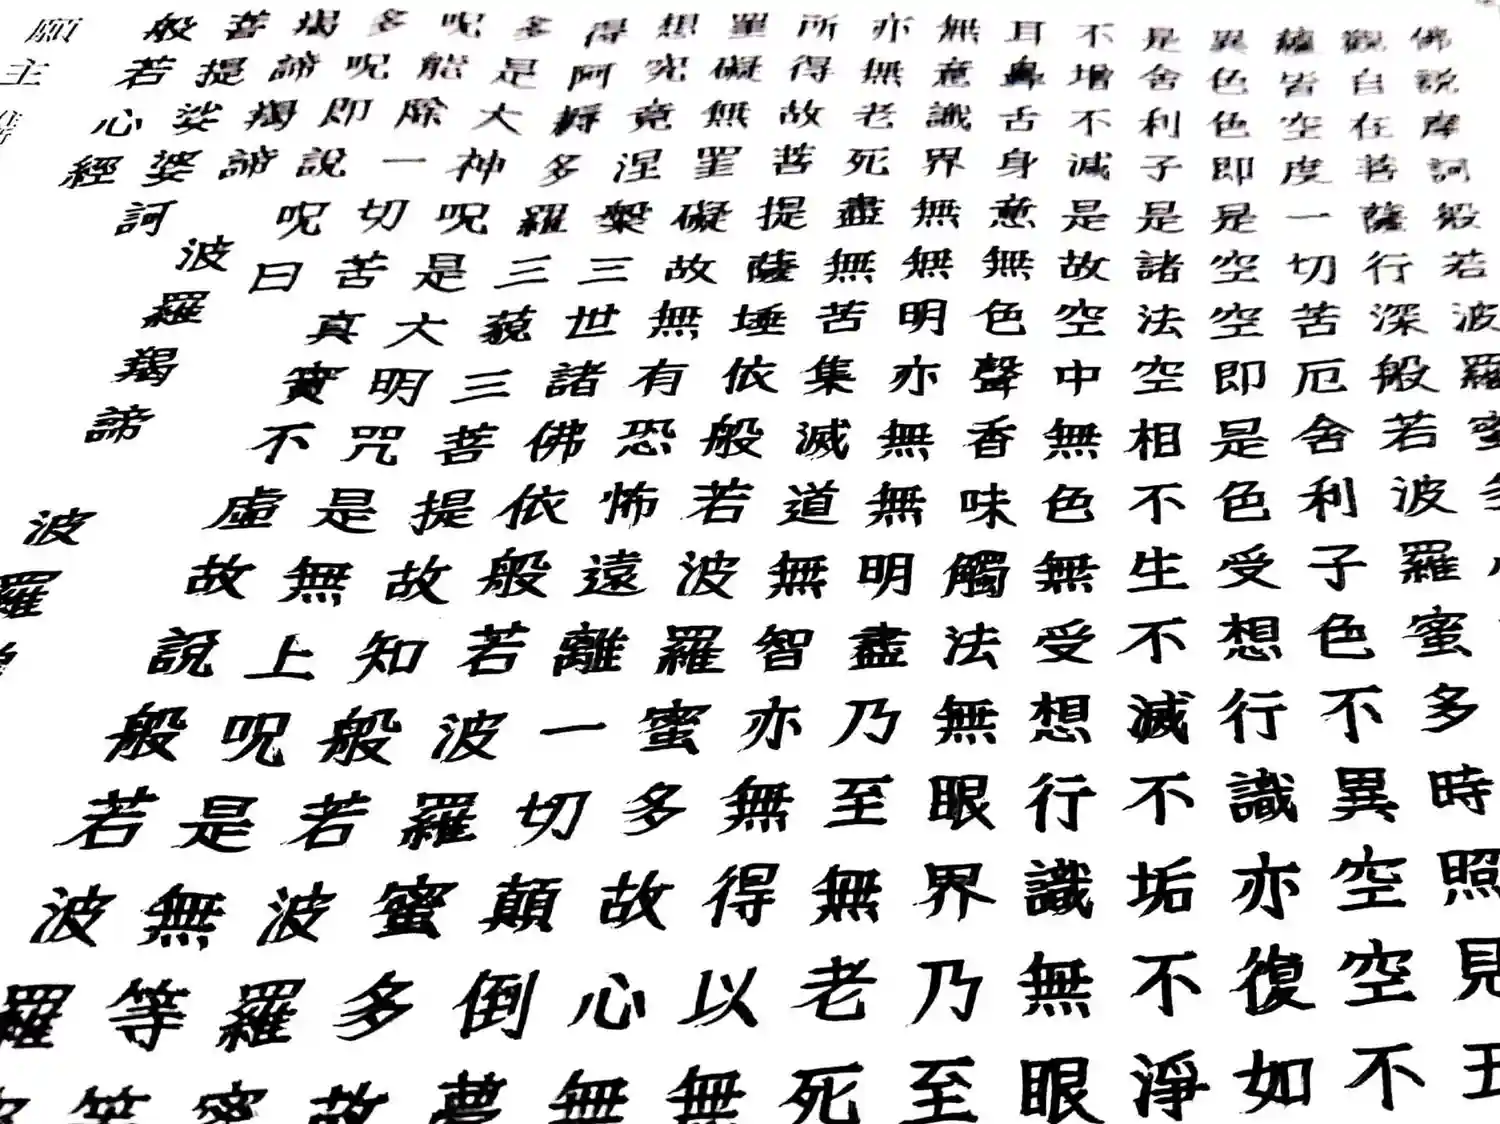 佛說摩訶般若波羅
觀自在菩薩行深般若波羅蜜多時照見
蘊皆空度一切苦厄舍利子色不異空空不
異色色即是空空即是色受想行識亦復如
是舍利子是諸法空相不生不滅不垢不淨
不增不減是故空中無色無受想行識無眼
耳鼻舌身意無色聲香味觸法無眼界乃至
無意識界無無明亦無無明盡乃至無老死
亦無老死盡無苦集滅道無智亦無得以無
所得故菩提薩埵依般若波羅蜜多故心無
罣礙無罣礙故無有恐怖遠離一切顛倒夢
想究竟涅槃三世諸佛依般若波羅蜜多故
得阿耨多羅三藐三菩提故知般若波羅蜜
多是大神呪是大明咒是無上呪是無等等
呪能除一切苦真實不虛故說般若波羅
多呪即說呪曰
羯諦羯諦 波羅羯諦 波羅
菩提娑婆訶
般若心經
願主